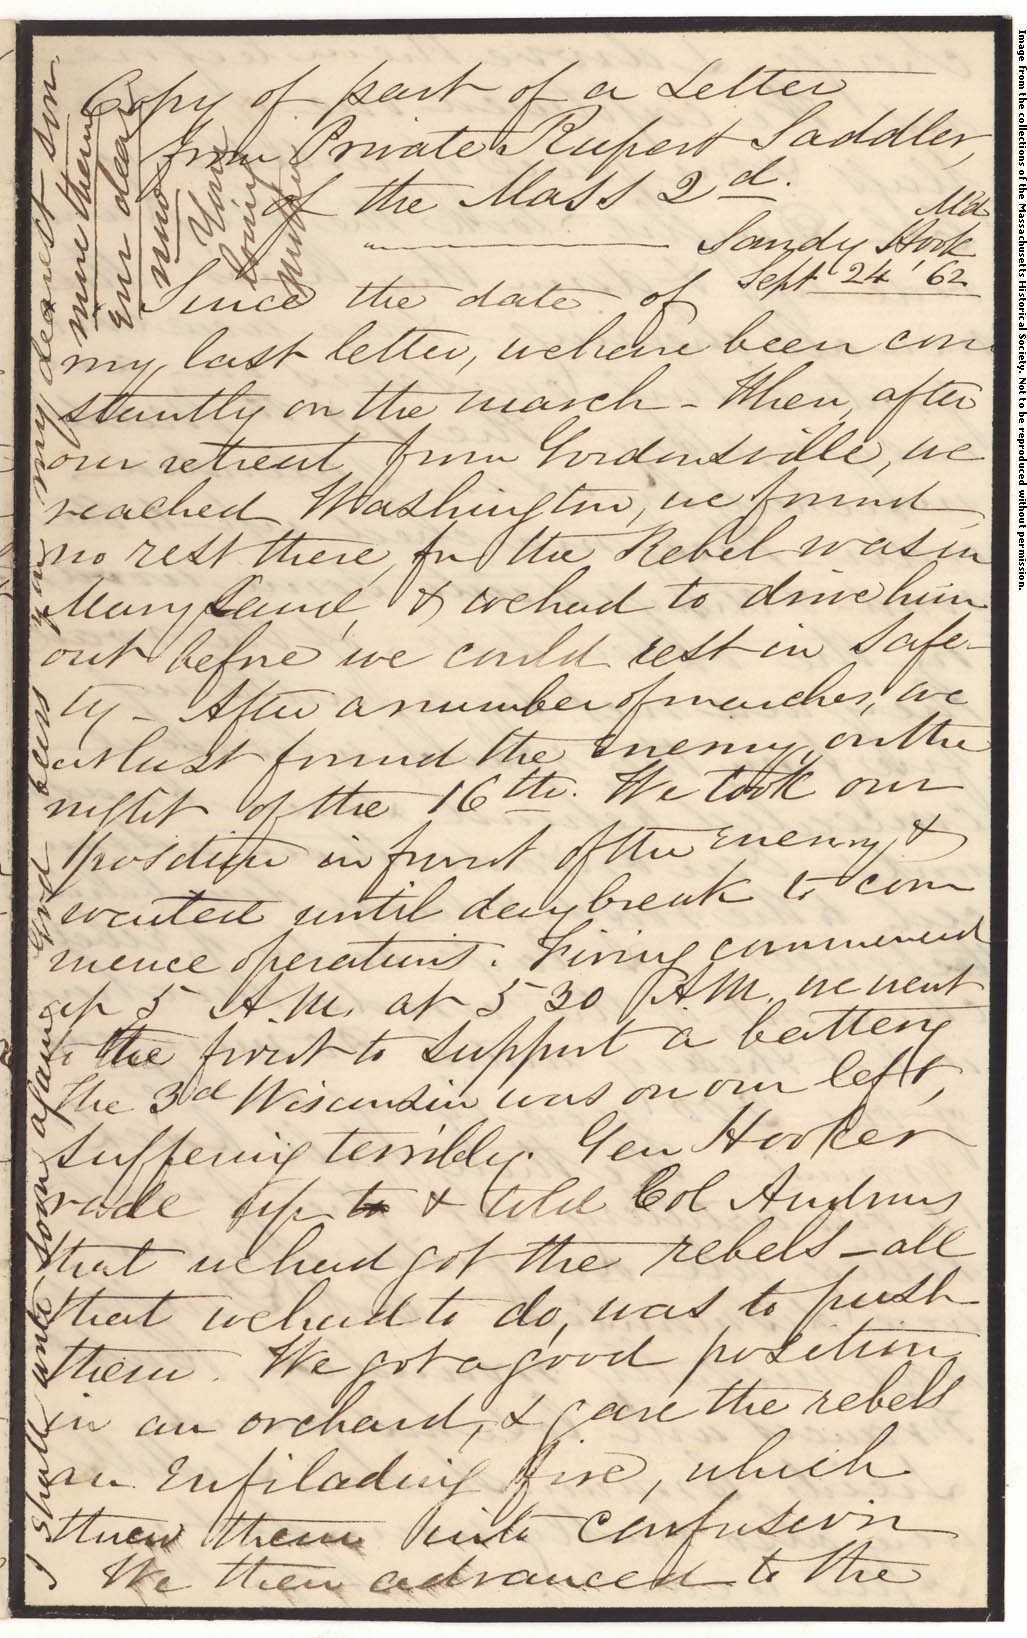 Copy of part of a Letter
from Private Rupert Saddler,
of the Mass 2d.
Sandy Hook Md
Sept 24' 62
Since the date of
my last letter, we have been con
stantly on the march - When, after
our retreat from Gordonsville, we
reached Washington, we found
no rest there, for the Rebel was in
Maryland, & we had to drive him
out before we could rest in safe-
ty - After a number of marches, we
at last found the Enemy, on the
night of the 16th. We took our
position in front of the Enemy, &
waited until daybreak to com
mence operations. Firing commenced
at 5 A.M. at 5 30 A.M. we went
to the front to support a battery
The 3d Wisconsin was on our left,
suffering terribly. Gen Hooker
rode up to & told Col Andrews
that we had got the rebels - all
that we had to do, was to push
them. We got a good position
in an orchard, & gave the rebels
an Enfilading fire, which
threw them into confusion
We then advanced to the
I shall write soon again. God bless you my dearest son
mine theane
Ever dear
mino
Your
loving
Mother
Image from the collections of the Massachusetts Historical Society. Not to be reproduced without permission.